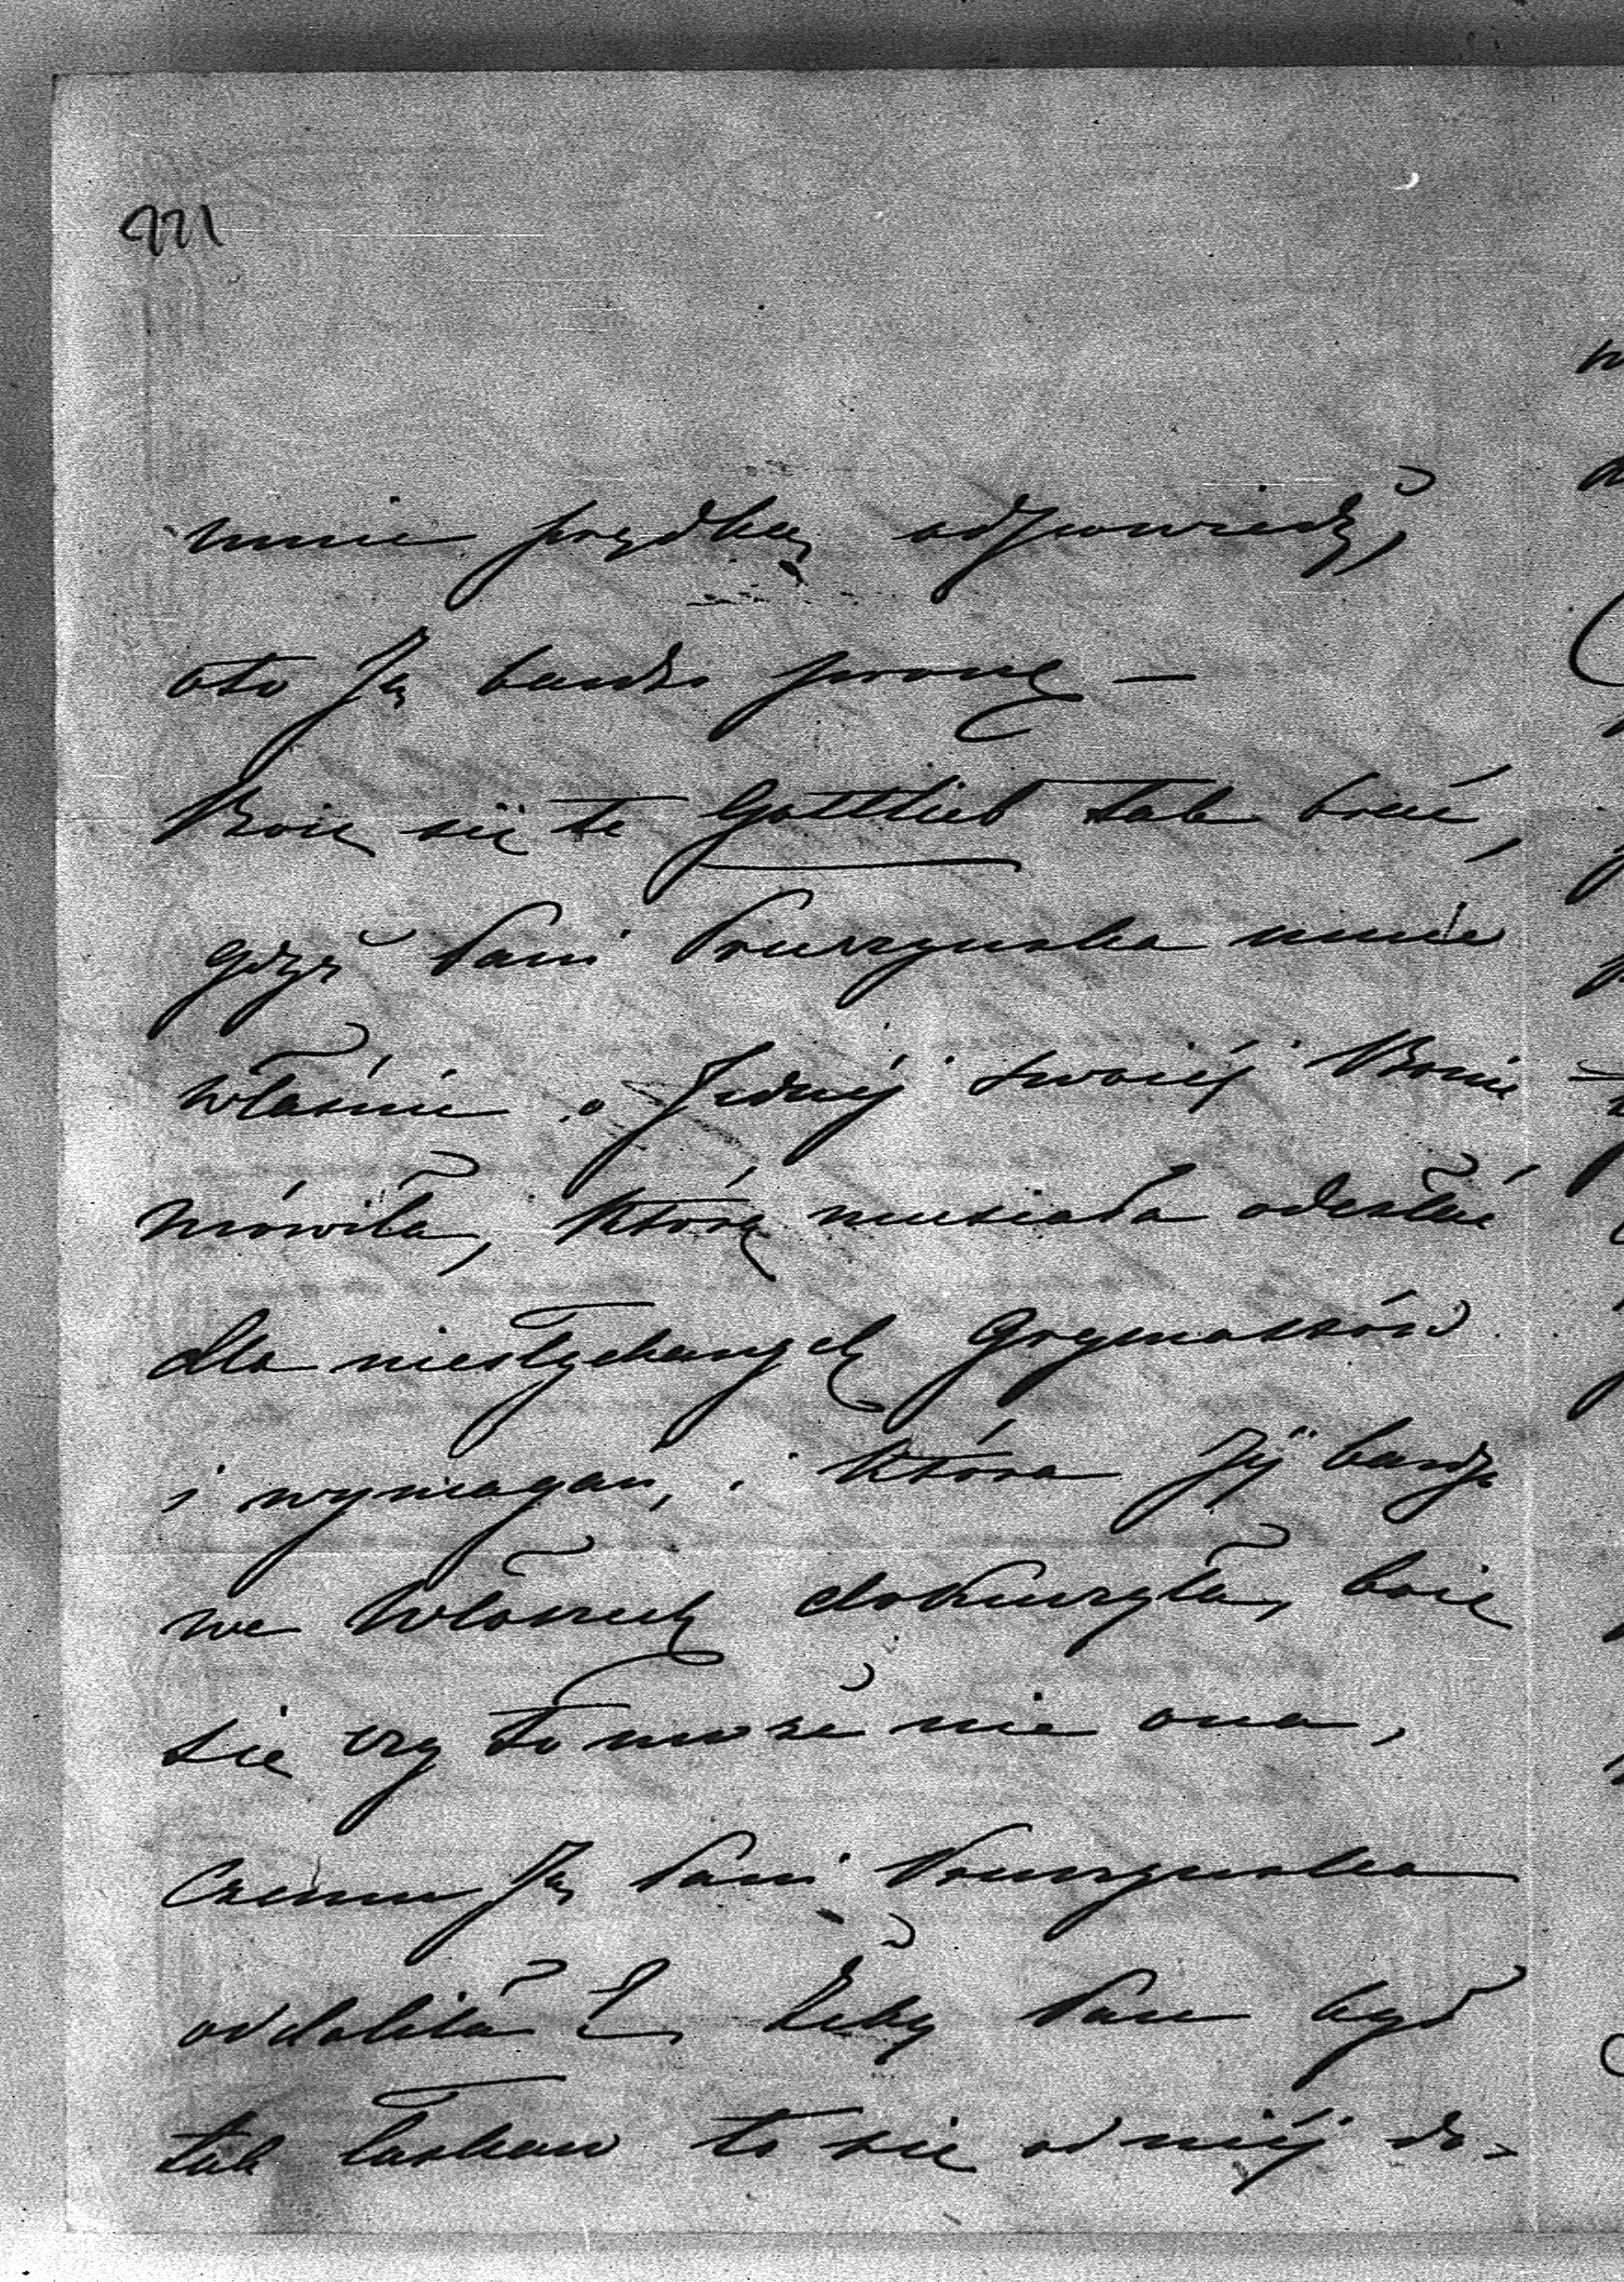 221
mnie prędką odpowiedź,
oto Ją bardzo proszę —
Boię się te Gottlieb tak brać,
gdyż Pani Pruszynska mnie
właśnie o Jednéj swoiéj Bonie
mówiła, którą musiała odesłać
dla niesłychanych Grymassów
i wymagan, i która Jéj bardzo
we Włoszech dokuczyła, boię
się czy to może nie ona,
Czemu Ją Pani Pruszynska
oddaliła Żeby Pan był
tak łaskaw to się od niéj do-